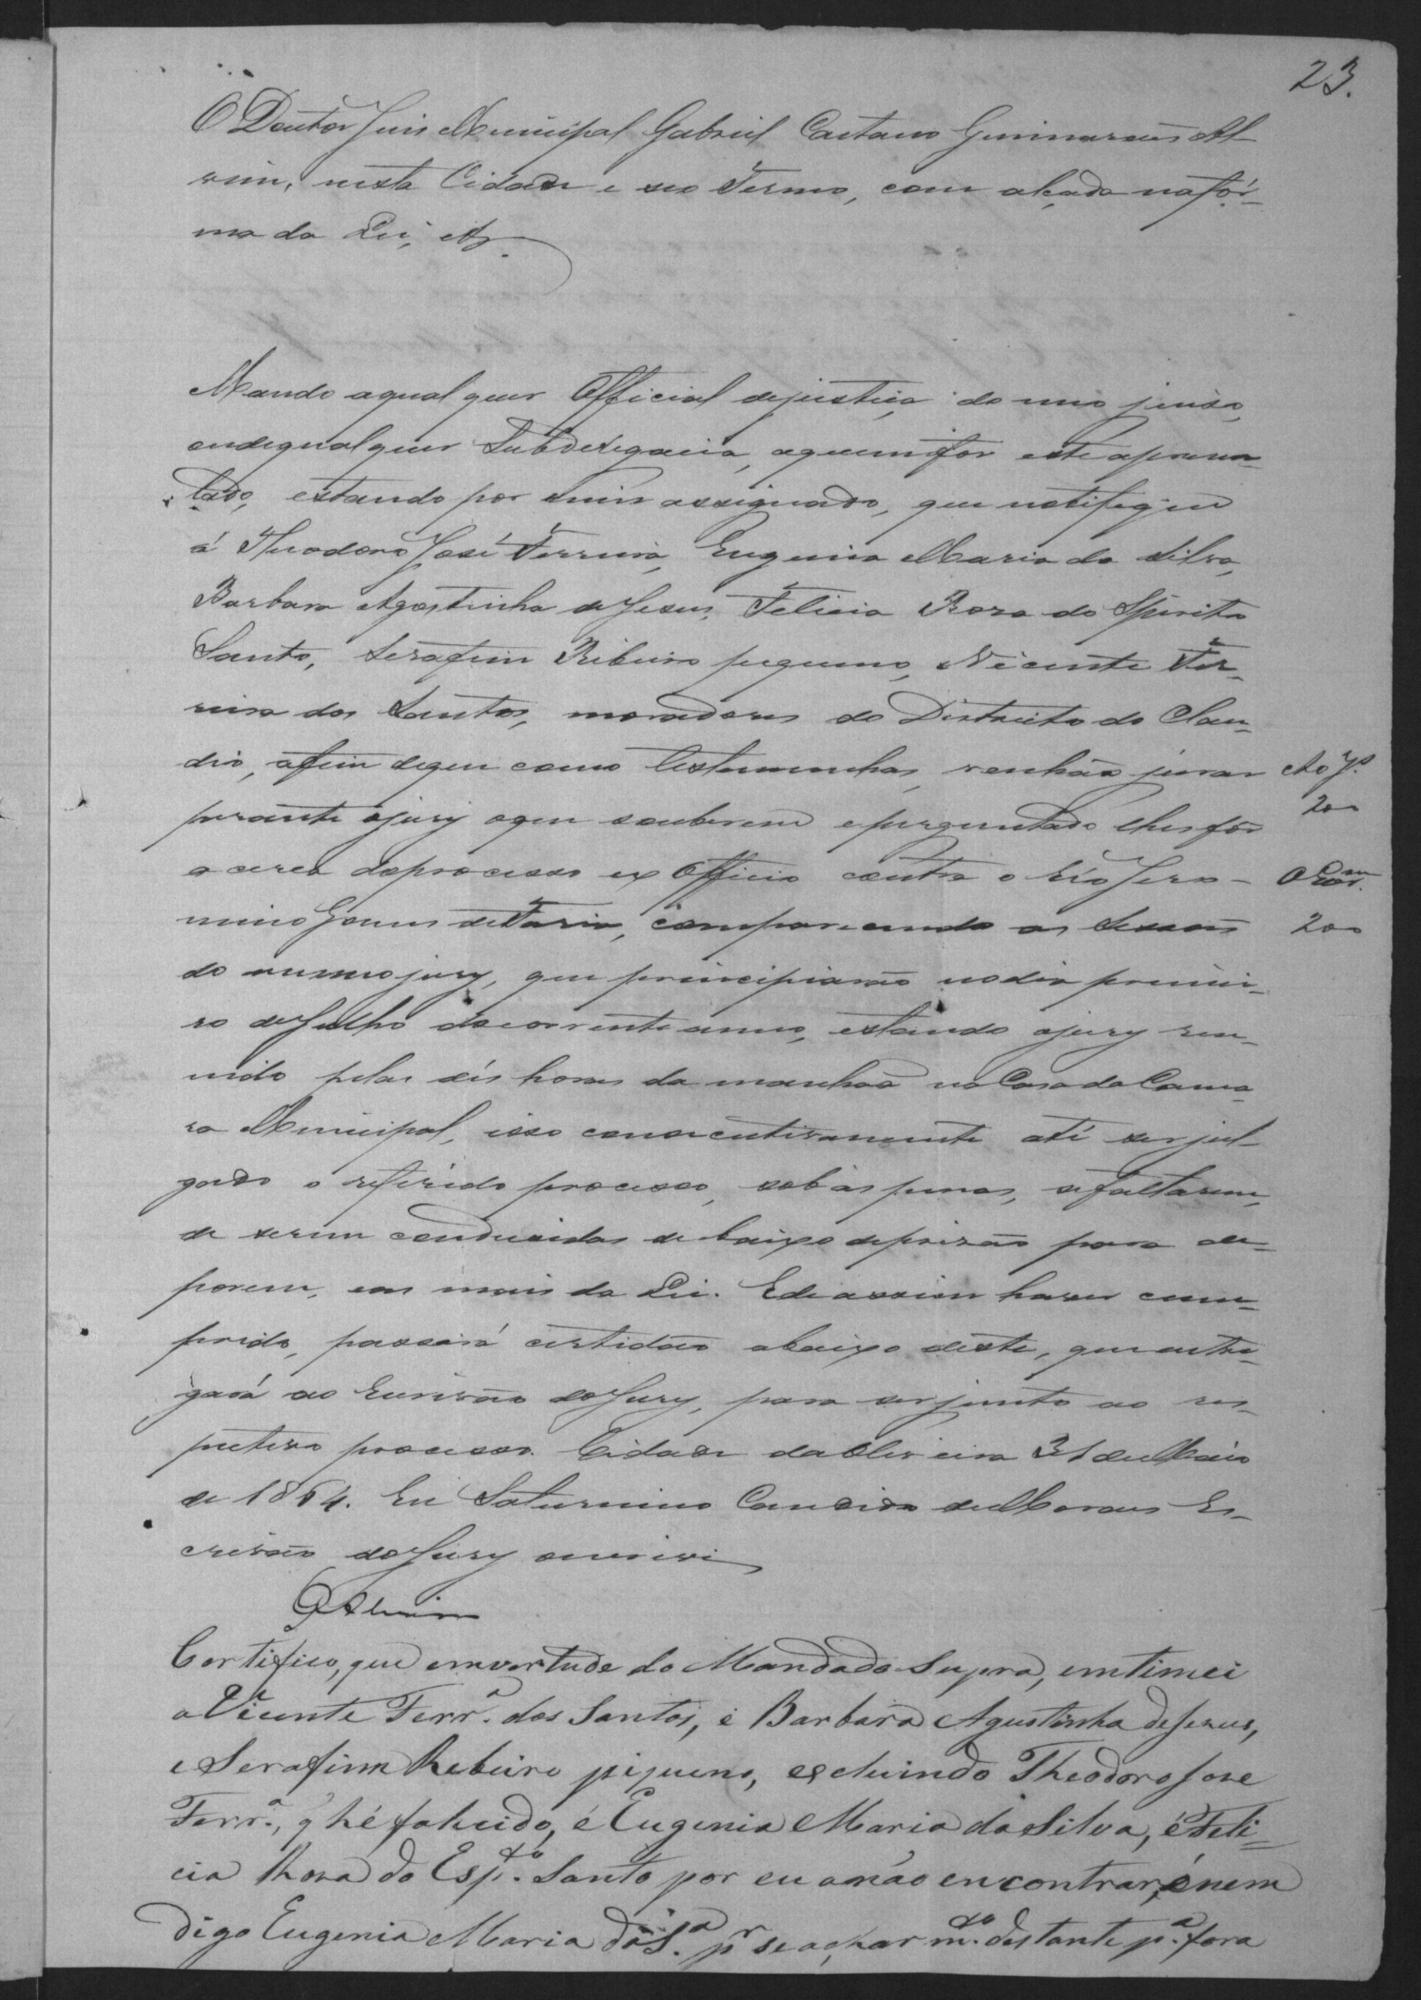 23.
O Doutor Juis Municipal Gabriel Caetano Guimaraes Al-
vim, nesta Cidade e seo Termo, com alçada na fór-
ma da Lei, etc.
Mando a qual quer Official de justiça do meo juiso,
ou de qual quer Subdelegacia, a quem for este apresen-
tado, estando por mim assignado, que notifique
á Theodoro José Ferreira, Eugenia Maria da Silva,
Barbara Agostinha de Jesus, Felicia Roza do Spirito
Santo, Serafim Ribeiro pequeno, Vicente Fer-
reira dos Santos, moradores do Districto do Clau-
dio, afim de que como testemunhas, venhão jurar
perante o jury o que souberem e perguntado lhes fôr
a cerca do processo ex Officio contra o Réo Jero-
nimo Gomes de Faria, comparecendo as Sessoens
do mesmo jury, que principiarão no dia primei-
ro de Julho do corrente anno, estando o jury reu-
nido pelas déz horas da manhaã na Casa da Cama-
ra Municipal, isso consecutivamente até ser jul-
gado o referido processo, sob as penas, se faltarem,
de serem condusidas de baixo de prizão para de-
porem, e as mais da Lei. E de assim haver cum-
prido, passará certidão abaixo deste, que entre-
gará ao Escrivão do Jury, para ser junto ao res-
pectivo processo. Cidade da Oliveira 31 de Maio
de 1864. Eu Saturnino Candido de Moraes Es-
crivão do Jury o escrivi
GAlvim
Ao Js.
200
200
Certifico, que em vertude do Mandado Supra, emtimei
a Vicente Ferr.a dos Santos, e Barbara Agustinha de Jezus,
e Serafim Rebeiro piqueno, excluindo Theodoro Joze
Ferr.a, q hé falecido, é Eugenia Maria da Silva, é Feli-
cia Roza do Esp.to Santo por eu a não encontrar, e nem
digo Eugenia Maria da S.a p.r se achar m.to destante p.a fora